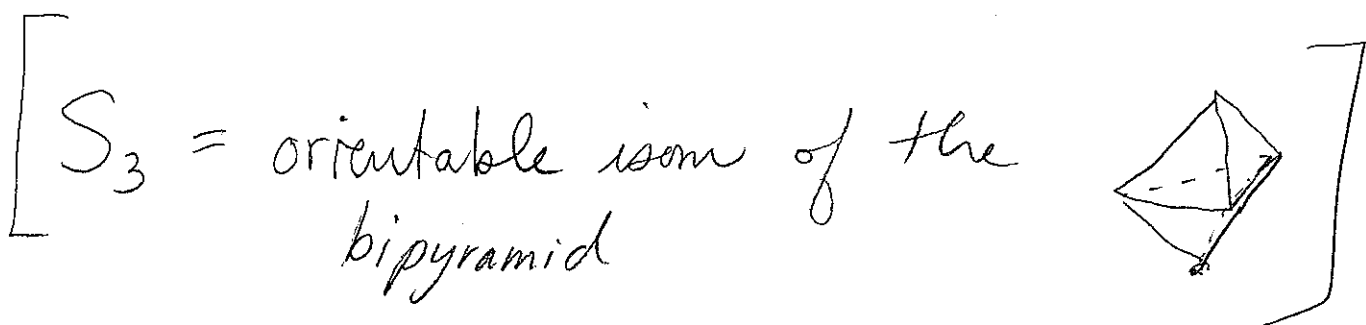 [S₃ = orientable isom of the ]
bipyramid